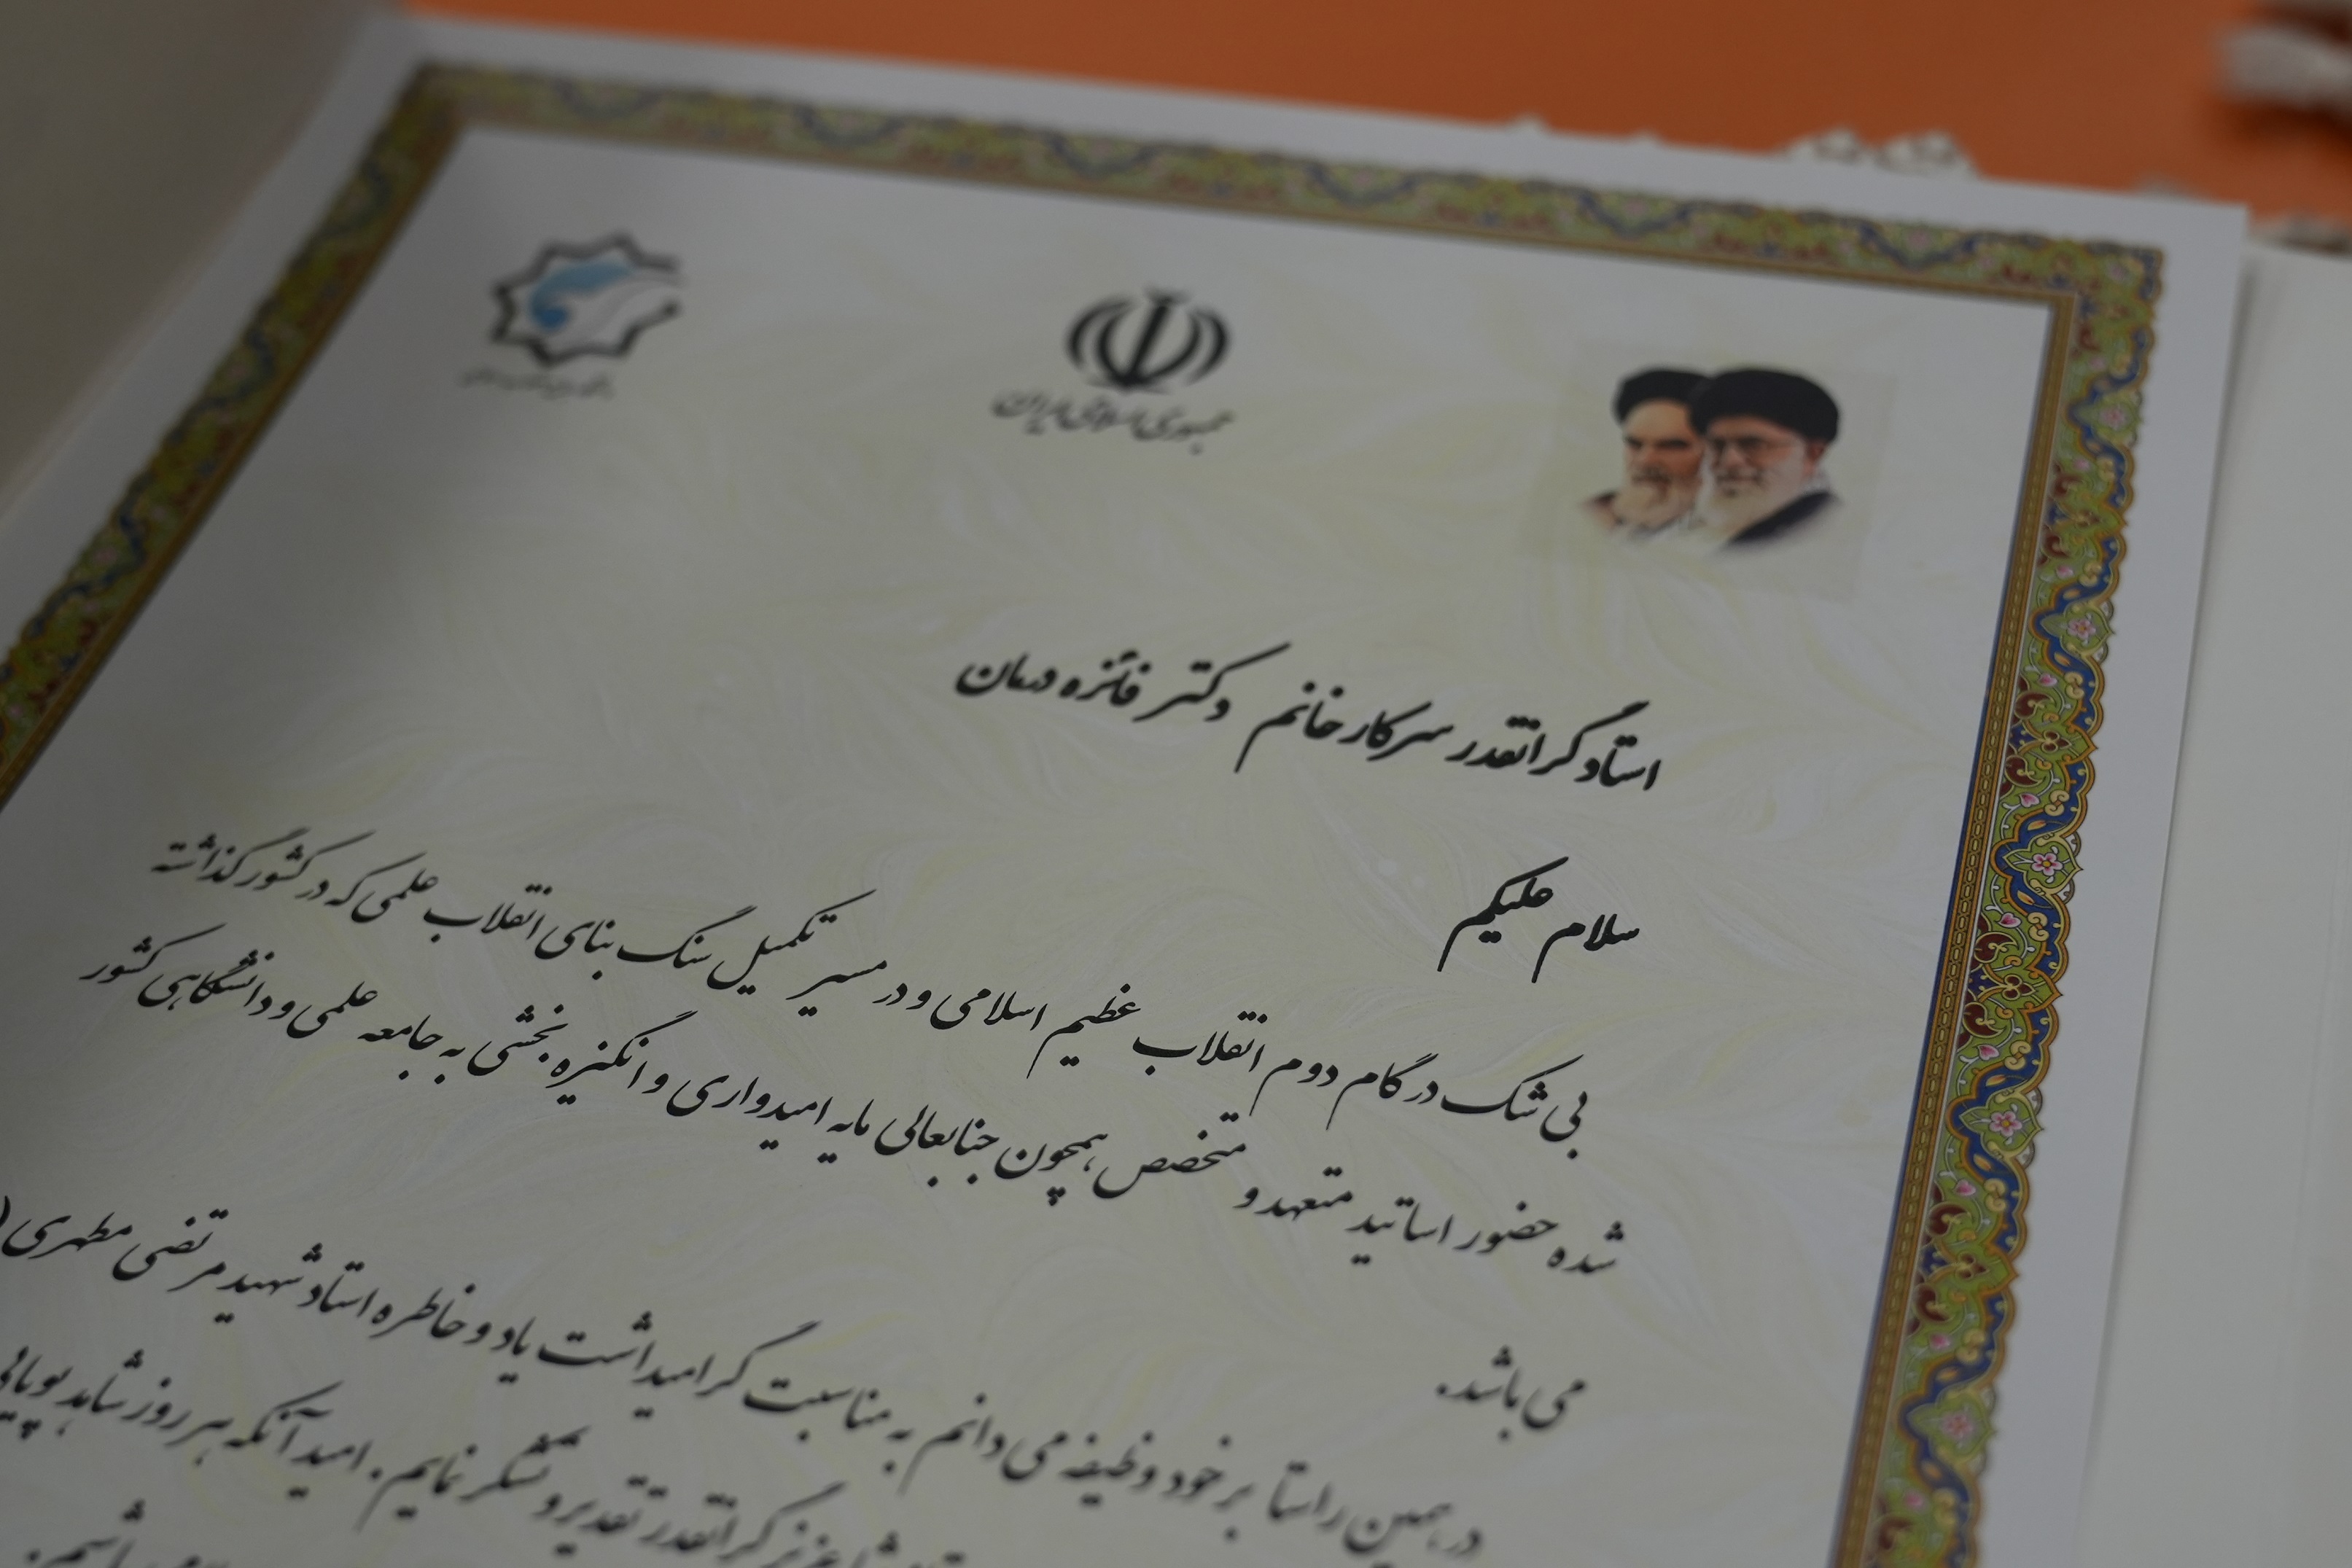 جمهوری اسلامی ایران
استاد گرانقدر سرکار خانم دکتر فائزه دهقان
سلام علیکم
بی شک در گام دوم انقلاب عظیم اسلامی و در مسیر تکمیل سنگ بنای انقلاب علمی که در کشور گذاشته
شده حضور اساتید متعهد و متخصص همچون جنابعالی مایه امیدواری و انگیزه بخشی به جامعه علمی و دانشگاهی کشور
می باشد.
در همین راستا بر خود وظیفه می دانم به مناسبت گرامیداشت یاد و خاطره استاد شهید مرتضی مطهری (
عزیز گرانقدر تقدیر و تشکر نمایم. امید آنکه هر روز شاهد پویایی
باشم.